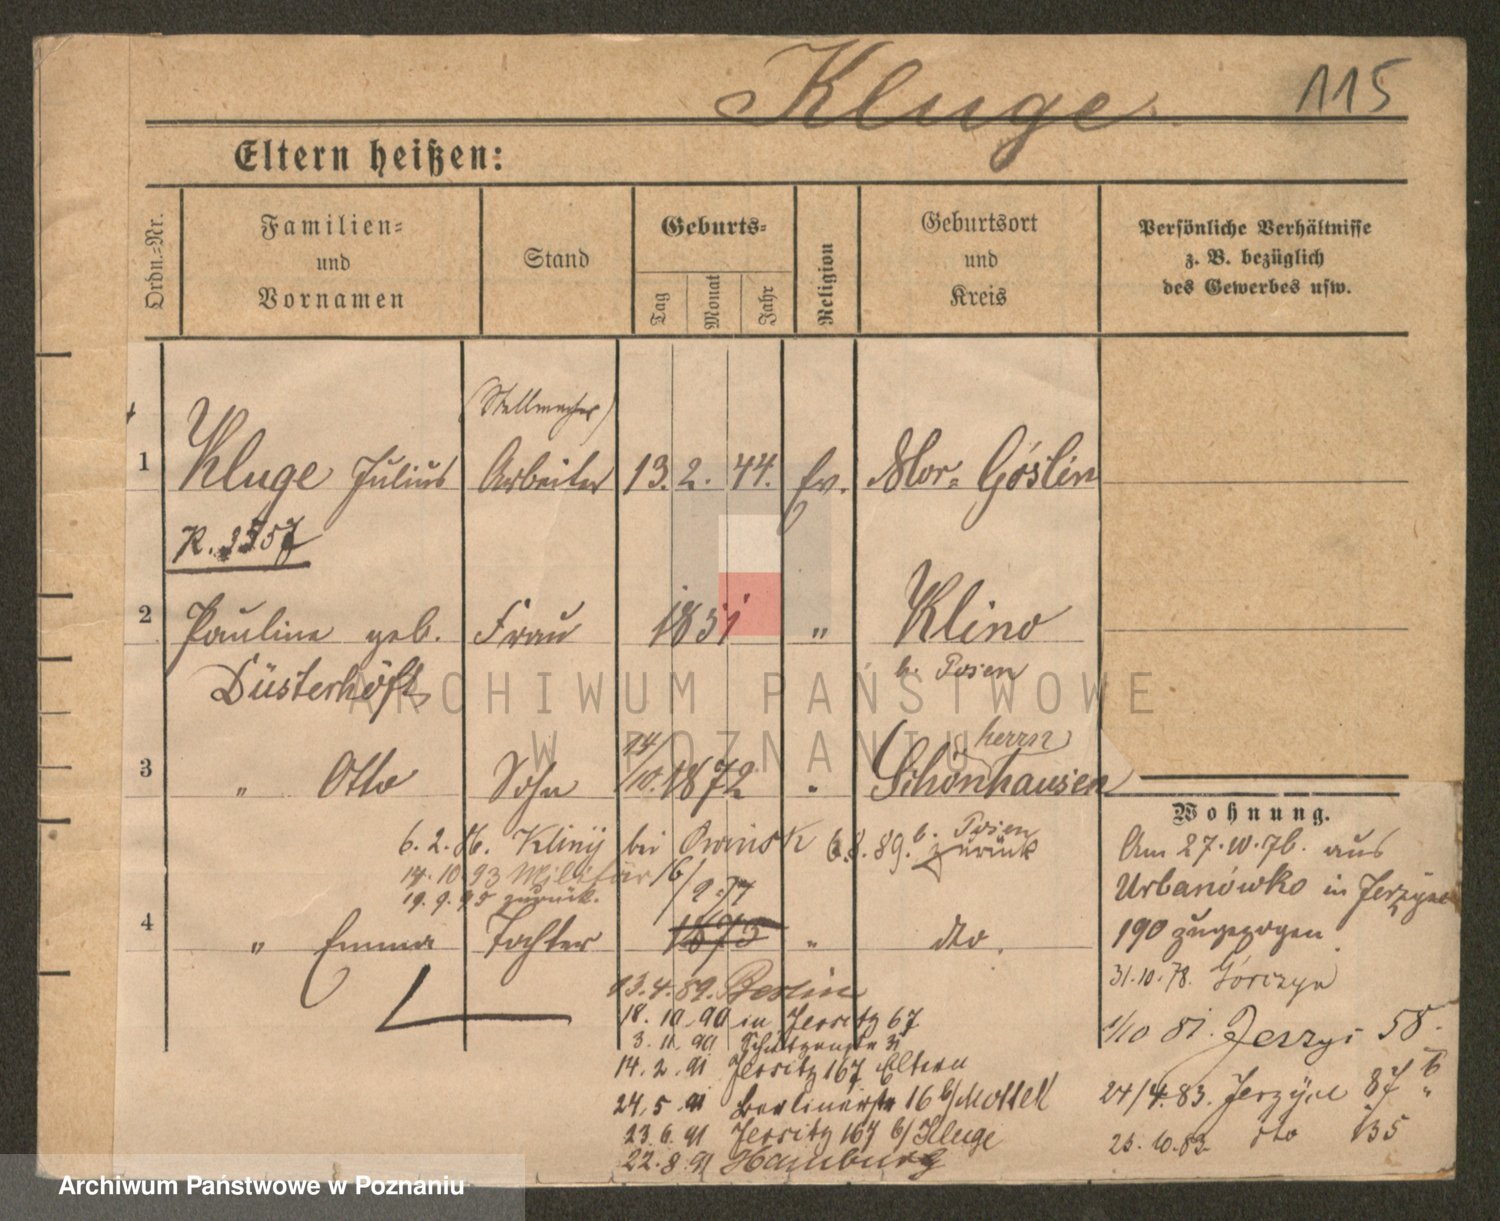 Kluge
115
Eltern heißen:
Ordn.=Nr.
Familien=
und
Vornamen
Stand
Geburts=
Tag
Monat
Jahr
Religion
Geburtsort
und
Kreis
Persönliche Verhältnisse
z. B. bezüglich
des Gewerbes usw.
(Stellmacher)
1 Kluge Julius Arbeiter 13. 2. 44. Ev. Mor= Góslin
R. 3357
2 Pauline geb. Frau 1851 " Klino
Düsterhöft b. Posen
herrn
3 " Otto Sohn 14/10. 1872 " Schönhausen
b. Posen
6. 2. 86. Kliny bei Owinsk 6.8.89. zurück
14.10.93 Militär
19.9.95 zurück.
16/2.77
4 " Emma Tochter 1875 " dto.
13.4.89. Berlin
18.10.90 in Jersitz 67
3.11.90 31
14.2.91 Jersitz 167 Eltern
24.5.91 Berlinerstr 16 b/Mottek
23.6.91 Jersitz 167 b/Kluge
22.8.91 Hamburg
Wohnung.
Am 27.10.76. aus
Urbanówko in Jerzyce
190 zugezogen
31.10.78. Górczyn
1/10 81. Jerzyc 58.
24/4.83. Jerzyce 87
25.10.83. dto 135
ARCHIWUM PAŃSTWOWE
W POZNANIU
Archiwum Państwowe w Poznaniu